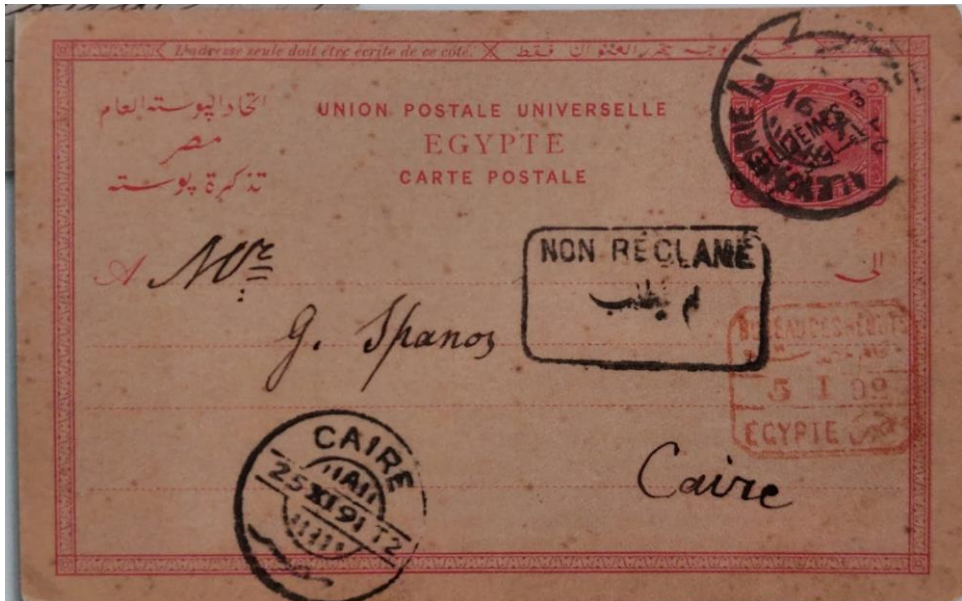 L'adresse seule doit être écrite de ce côté.
اتحاد البوسته العام
مصر
تذكرة بوسته
UNION POSTALE UNIVERSELLE
EGYPTE
CARTE POSTALE
ALEXANDRIE
A Mr
الى
NON RÉCLAMÉ
G. Spanos
BUREAU DES REBUTS
5 I 92
EGYPTE
CAIRE
25 XI 91 T2
Caire